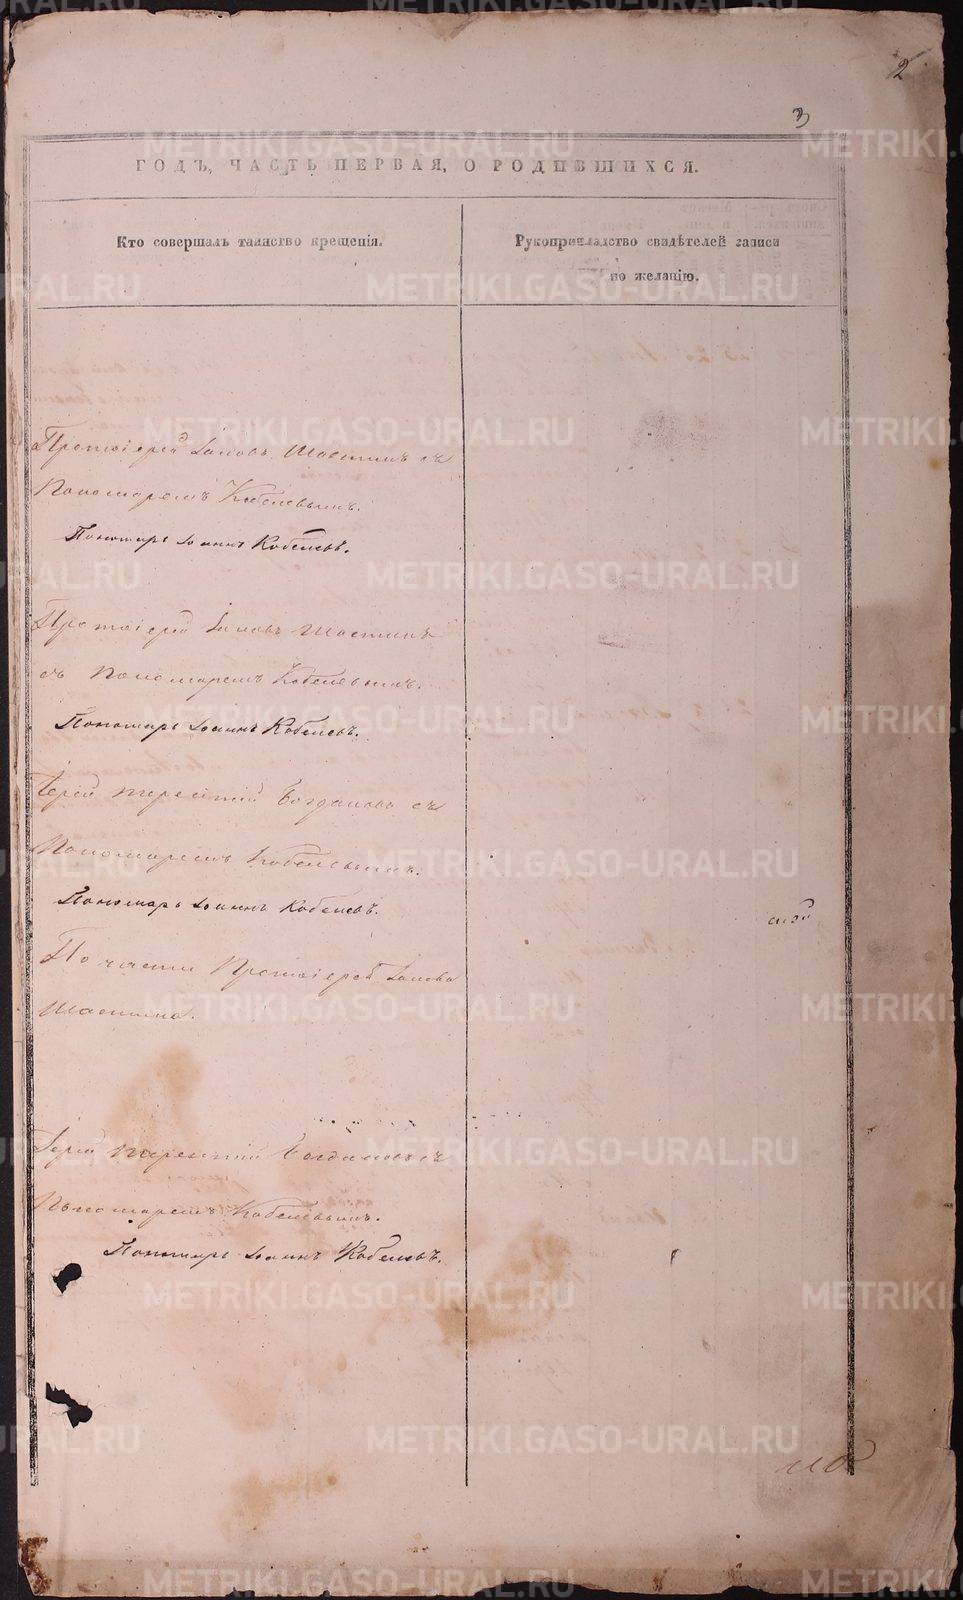 2
3
ГОДЪ, ЧАСТЬ ПЕРВАЯ, О РОДИВШИХСЯ.
Кто совершалъ таинство крещенія.
Рукоприкладство свидѣтелей записи
по желанію.
Протоіерей Іаковъ Шастинъ съ
Пономаремъ Кобелевымъ.
Пономарь Іоаннъ Кобелевъ.
Протоіерей Іаковъ Шастинъ
съ Пономаремъ Кобелевымъ.
Пономарь Іоаннъ Кобелевъ.
Іерей Терентій Богдановъ съ
Пономаремъ Кобелевымъ.
Пономарь Іоаннъ Кобелевъ.
По части Протоіерея Іакова
Шастина.
Іерей Терентій Богдановъ съ
Пономаремъ Кобелевымъ.
Пономарь Іоаннъ Кобелевъ.
METRIKI.GASO-URAL.RU